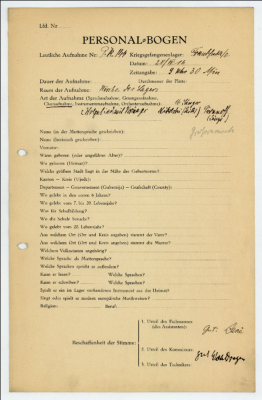 Lfd. Nr.
PERSONAL-BOGEN
Lautliche Aufnahme Nr.: P.K. Kriegsgefangenenlager:
Datum:
Zeitangabe: 9 Uhr 30 Min
Dauer der Aufnahme: Durchmesser der Platte:
Raum der Aufnahme: des Lagers
Art der Aufnahme (Sprechaufnahme, Gesangsaufnahme,
Choraufnahme, Instrumentenaufnahme, Orchesteraufnahme):
Name (in der Muttersprache geschrieben):
Name (lateinisch geschrieben):
Vorname:
Wann geboren (oder ungefähres Alter)?
Wo geboren (Heimat)?
Welche größere Stadt liegt in der Nähe des Geburtsortes?
Kanton — Kreis (Ujedz):
Departement — Gouvernement (Gubernija) — Grafschaft (County):
Wo gelebt in den ersten 6 Jahren?
Wo gelebt vom 7. bis 20. Lebensjahr?
Was für Schulbildung?
Wo die Schule besucht?
Wo gelebt vom 20. Lebensjahr?
Aus welchem Ort (Ort und Kreis angeben) stammt der Vater?
Aus welchem Ort (Ort und Kreis angeben) stammt die Mutter?
Welchem Volksstamm angehörig?
Welche Sprache als Muttersprache?
Welche Sprachen spricht er außerdem?
Kann er lesen? Welche Sprachen?
Kann er schreiben? Welche Sprachen?
Spielt er ein im Lager vorhandenes Instrument aus der Heimat?
Singt oder spielt er modern europäische Musikweisen?
Religion: Beruf:
1. Urteil des Fachmannes
(des Assistenten): gut.
Beschaffenheit der Stimme:
2. Urteil des Kommissars: gut
3. Urteil des Technikers: